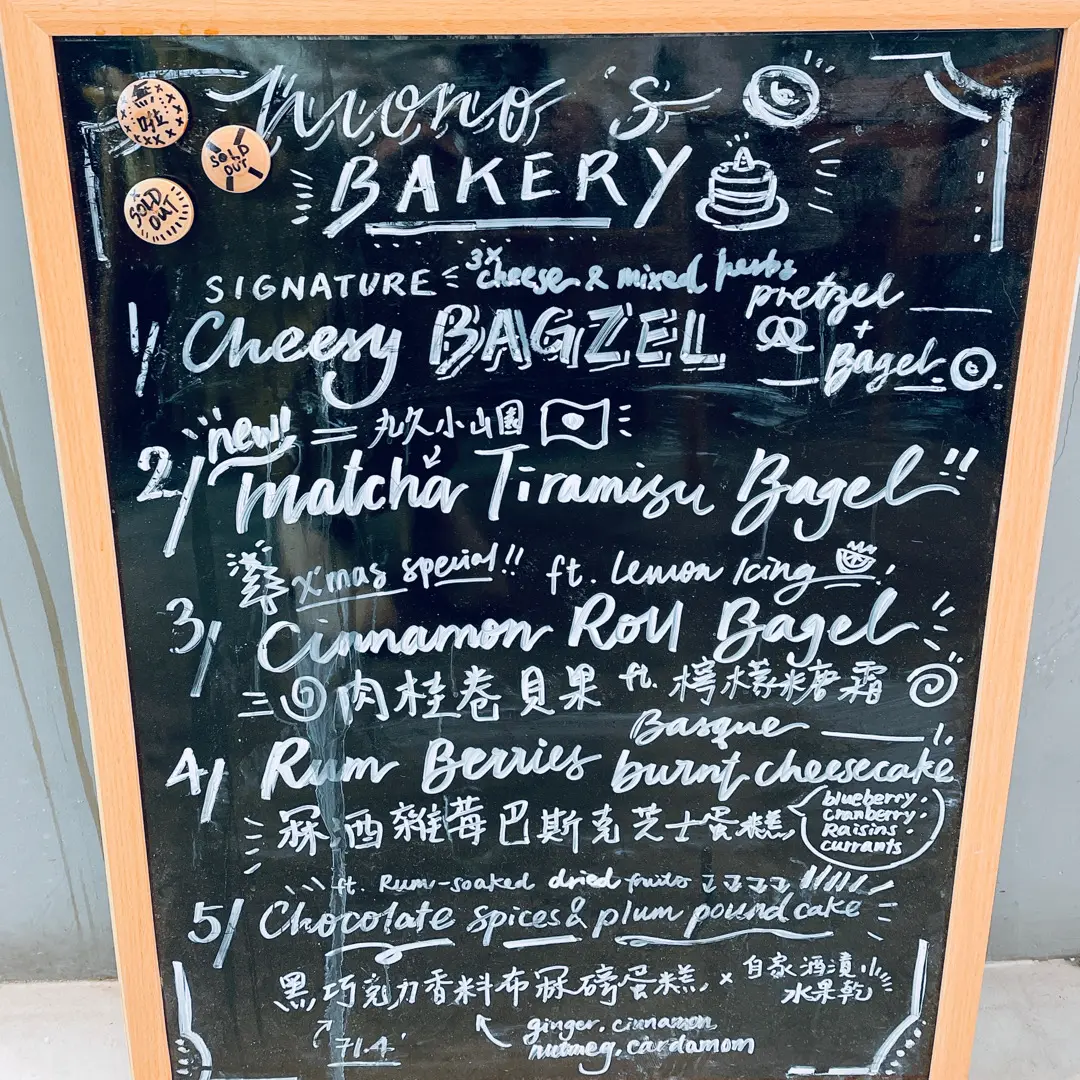 無啦
SOLD OUT
SOLD OUT
nuono's
BAKERY
SIGNATURE 3x cheese & mixed herbs
1/ Cheesy BAGZEL
pretzel + Bagel
new! 丸久小山園
2/ Matcha Tiramisu Bagel!!
X'mas special!! ft. lemon Icing
3/ Cinnamon Roll Bagel
肉桂卷貝果 ft. 檸檬糖霜
Basque
4/ Rum Berries burnt cheesecake
冧酒雜莓巴斯克芝士蛋糕
blueberry.
cranberry.
Raisins.
currants
ft. Rum-soaked dried fruits
5/ Chocolate spices & plum pound cake
黑巧克力香料布冧磅蛋糕 x 自家酒漬
水果乾
71.4
ginger, cinnamon
nutmeg, cardamom